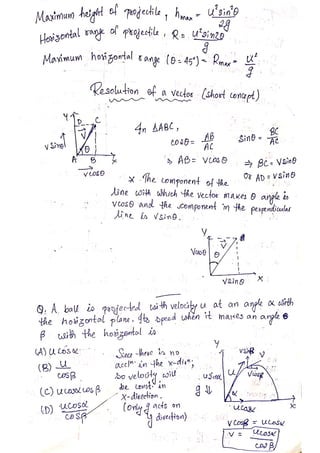 Maximum height of projectile, hmax = u²sin²θ / 2g
Horizontal range of projectile, R = u²sin2θ / g
Maximum horizontal range (θ=45°) → Rmax = u² / g
Resolution of a vector (short concept)
Y D C
V sinθ V θ
A B X
vcosθ
In ΔABC,
cosθ = AB / AC sinθ = BC / AC
⇒ AB = vcosθ ⇒ BC = vsinθ
Or AD = vsinθ
* The component of the
line with which the vector makes θ angle is
vcosθ and the component in the perpendicular
line is vsinθ.
Y
Vcosθ θ V
vsinθ X
Q. A ball is projected with velocity u at an angle α with
the horizontal plane. Its speed when it makes an angle
β with the horizontal is
(A) u cosα
(B) u / cosβ
(C) ucosα cosβ
(D) ucosα / cosβ
Since there is no
accⁿ in the x-dirⁿ,
so velocity will
be const in
x-direction.
(only g acts on
y direction)
Y
usinα u g↓
ucosα X
vcosβ = ucosα
v = ucosα / cosβ